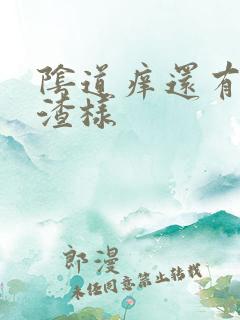 陰道癢還有
渣樣
郎漫
未经同意禁止转载